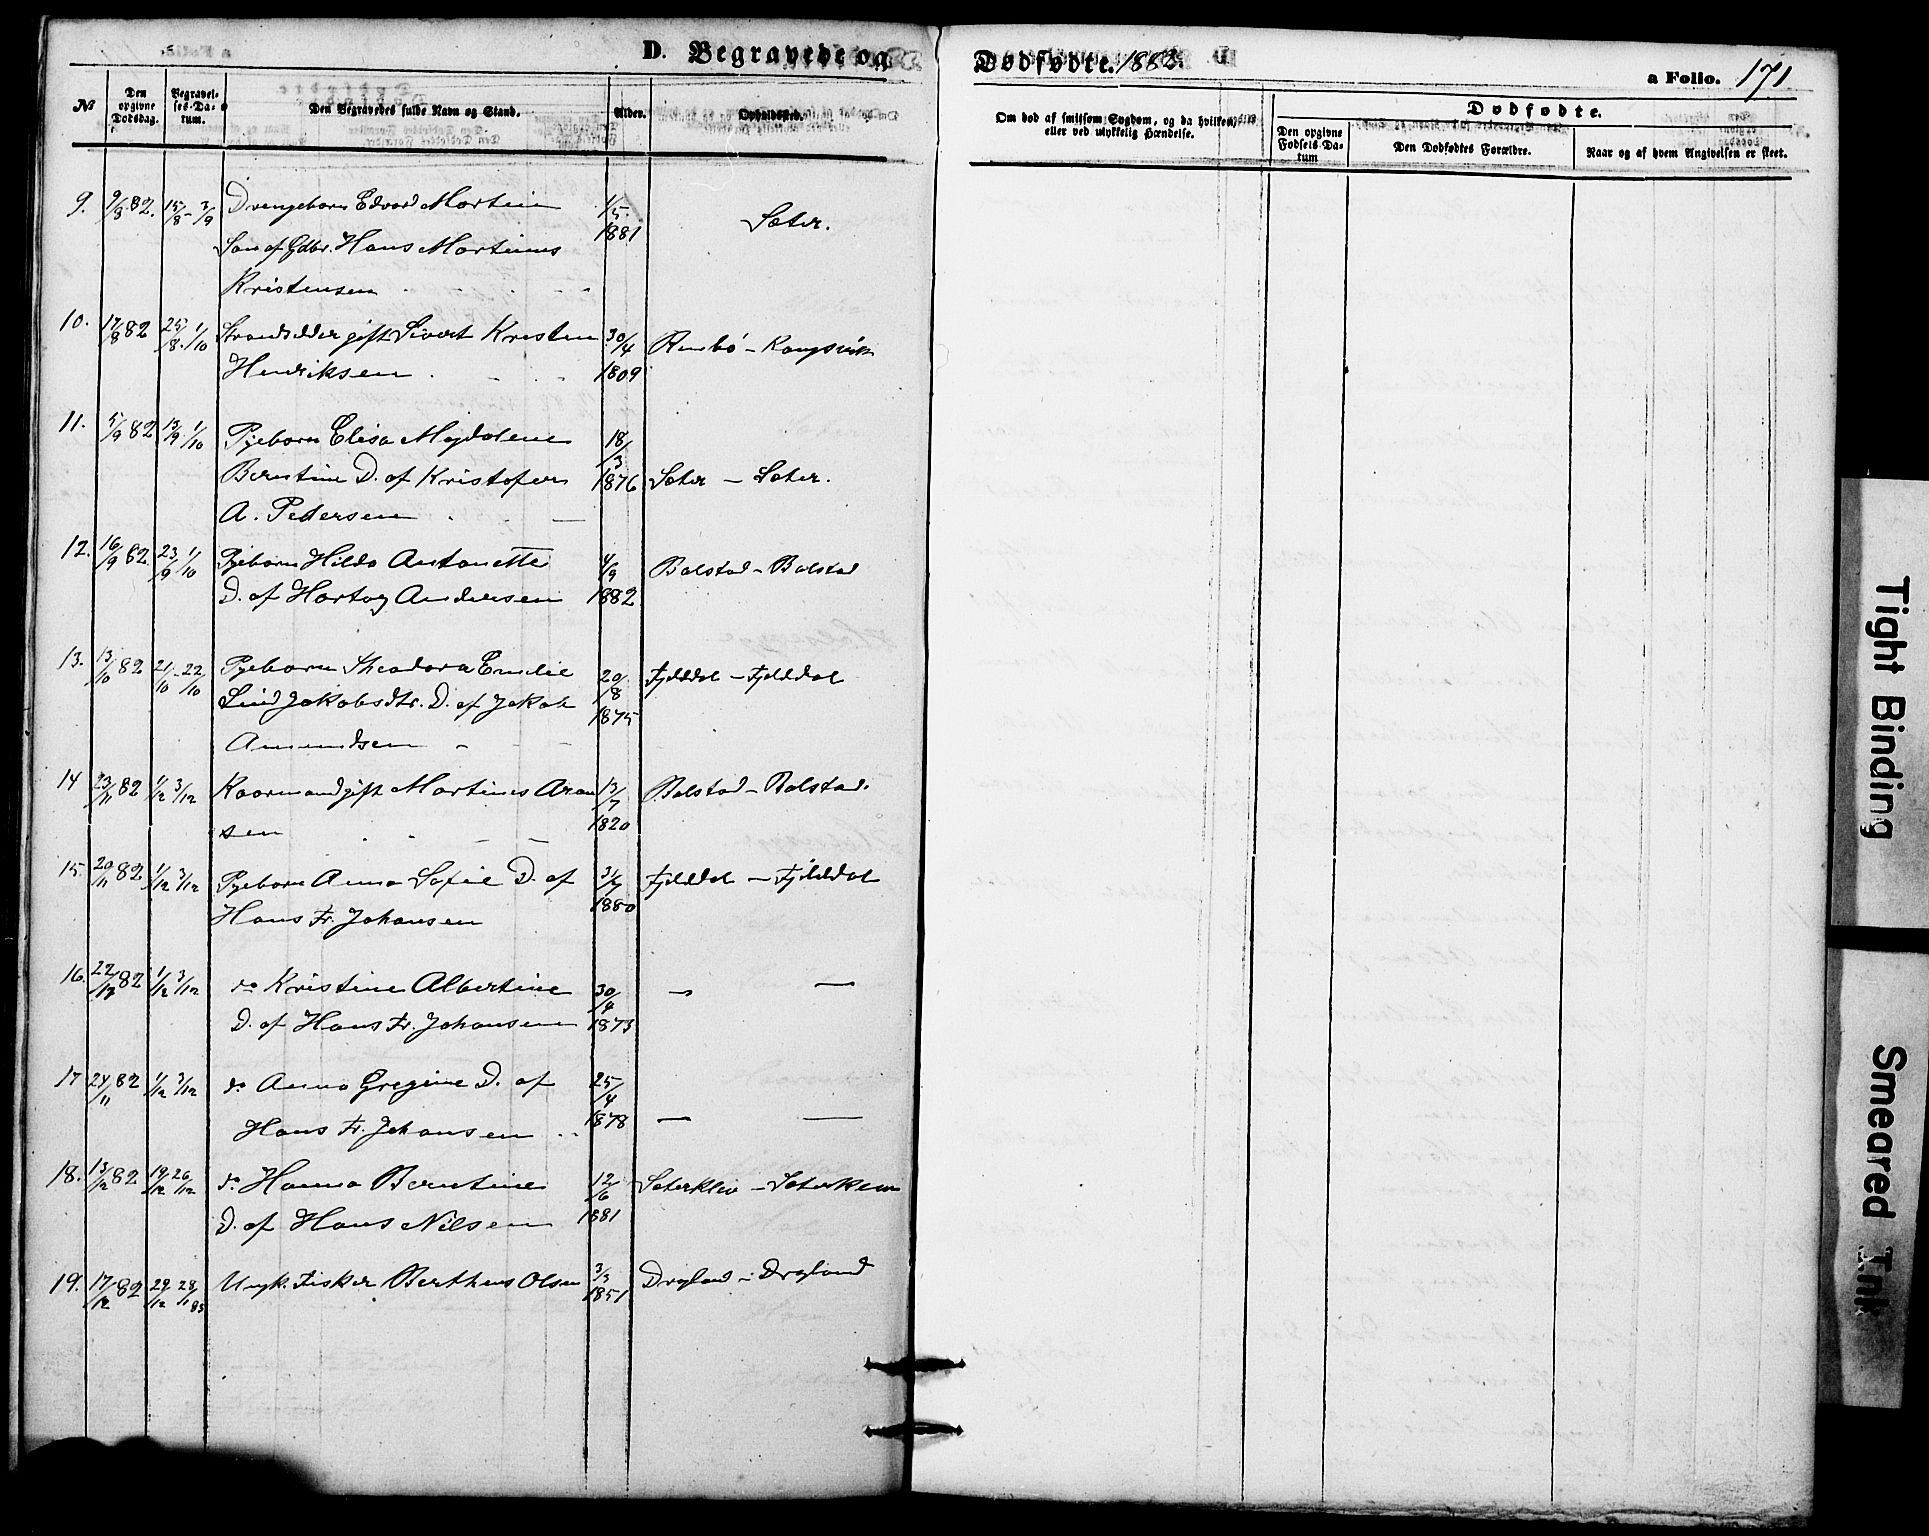 D. Begravede og Dødfødte. 1882.
a Folio. 171.
№
Den opgivne Dødsdag.
Begravelses-Datum.
Den Begravedes fulde Navn og Stand.
Alder.
Opholdssted.
Om død af smitsom Sygdom, og da hvilken,
eller ved ulykkelig Hændelse.
Dødfødte.
Den opgivne Fødsels-Datum
Den Dødfødtes Forældre.
Naar og af hvem Angivelsen er skeet.
9. 9/8 82. 15/8 - 3/9 Drengebarn Edvard Martin 1/5 1881 Sæter.
Søn af Gdbr. Hans Martinus
Kristensen
10. 17/8 82 25/8 1/10 Strandsidder gift Sivert Kristen 30/4 1809
Henriksen
11. 5/9 82 13/9 1/10 Pigebarn Elisa Magdalene 18/3
Berntine D. af Kristofer 1876 Sæter - Sæter.
A. Pedersen
12. 16/9 82. 23/9 1/10 Pigebarn Hilda Antonette 4/9 Balstad - Balstad
D. af Hartvig Andersen 1882
13. 13/10 82 21/10 - 22/10 Pigebarn Theodora Emilie 20/8 Fjelddal - Fjelddal
Lind Jakobsdtr. D. af Jakob 1875
Amundsen
14 23/11 82 1/12 3/12 Kaarmand gift Martinus Aron 13/7 Balstad - Balstad.
sen 1820
15. 20/11 82 1/12 3/12 Pigebarn Anna Sofie D. af 3/7 Fjelddal - Fjelddal
Hans Fr. Johansen 1880
16. 22/11 82 1/12 3/12 do Kristine Albertine 30/4 — —
D. af Hans Fr. Johansen 1873
17 24/11 82 1/12 3/12 do Anna Gregine D. af 25/4
Hans Fr. Johansen 1878 — —
18. 13/12 82 19/12 26/12 do Hanna Berntine 12/6 Sæterklev -
D. af Hans Nilsen 1881
19. 17/12 82 29/12 28/1 83 Ungk. Fisker Bertheus Olsen 3/3 1851
Tight Binding
Smeared Ink